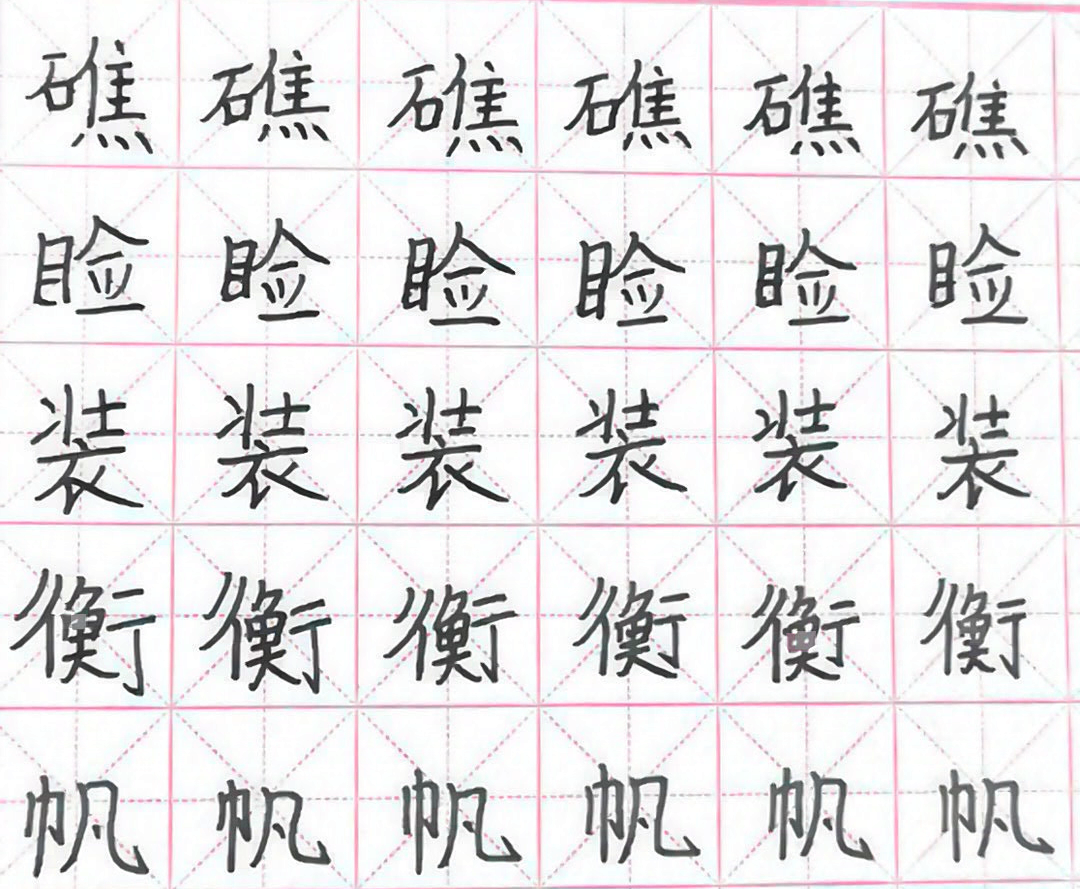 礁礁礁礁礁礁
睑睑睑睑睑睑
装装装装装装
衡衡衡衡衡衡
帆帆帆帆帆帆